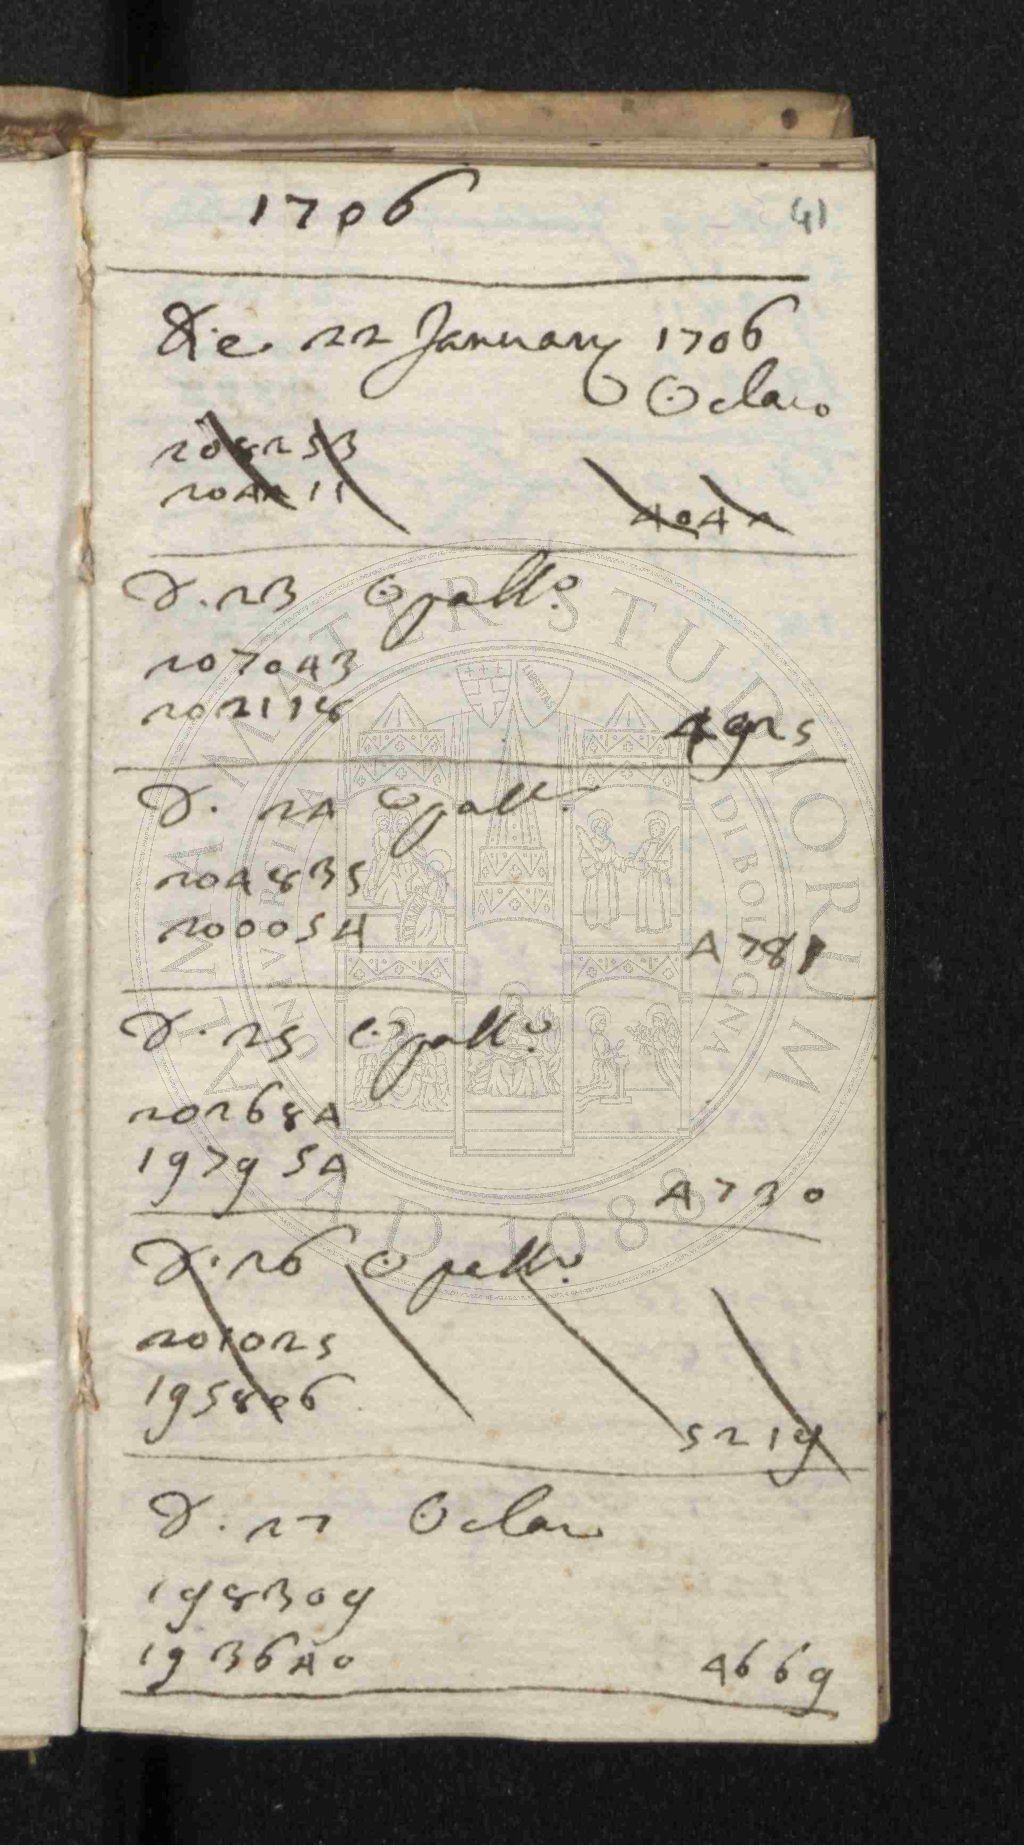 1706
41
Die 22 January 1706
☉ claro
208253
204211
4042
D. 23 ☉ pall.º
207043
202118
4925
D. 24 ☉ pall.º
204835
200054
4781
D. 25 ☉ pall.º
202684
197954
4730
D. 26 ☉ pall.º
201025
195806
5219
D. 27 ☉ claro
198309
193640
4669
ALMA MATER STUDIORUM
A.D. 1088
UNIVERSITÀ DI BOLOGNA
LIBERTAS